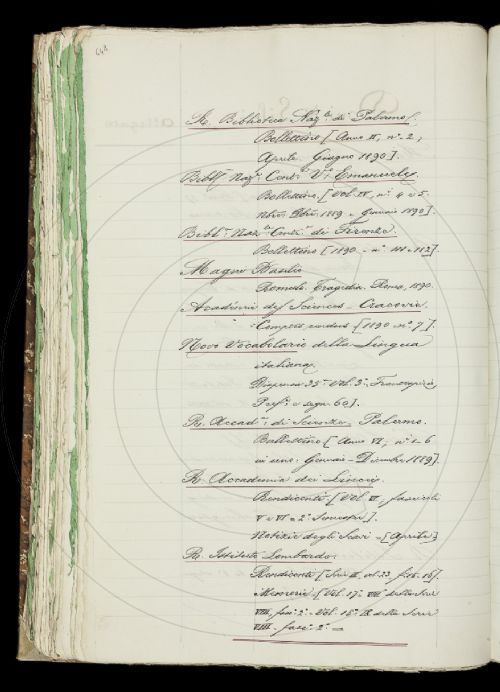 648
R. Biblioteca Naz.le di Palermo.
Bollettino [Anno II, n.º 2,
Aprile Giugno 1890].
Bibl. Naz. Cent. V. Emanuele.
Bollettino. [Vol. IV, n.i 4 e 5.
Nbre. Dbre. 1889 e Gennaio 1890].
Bibl. Naz. Cent. di Firenze.
Bollettino [1890 - n.i 111 e 112].
Magni Basilio
Romolo. Tragedia. Roma, 1890.
Académie des Sciences - Cracovie.
Comptes rendus [1890 n.º 7].
Novo Vocabolario della Lingua
italiana.
Dispensa 35.a Vol. 3.º
e segn. 60].
R. Accad. di Scienze, Palermo.
Bullettino [Anno VI, n.i 1-6
Gennaio - Dicembre 1889].
R. Accademia dei Lincei.
Rendiconti [Vol. VI, fascicoli
V e VI - 2.º Semestre].
Notizie degli Scavi - [Aprile]
R. Istituto Lombardo.
Rendiconti [Serie II, vol. 23 f. 15-16].
Memorie [Vol. 17.º VIII della Serie
VIII, fasc. 2.º - Vol. 18.º IX della Serie
VIII - fasc. 2.º